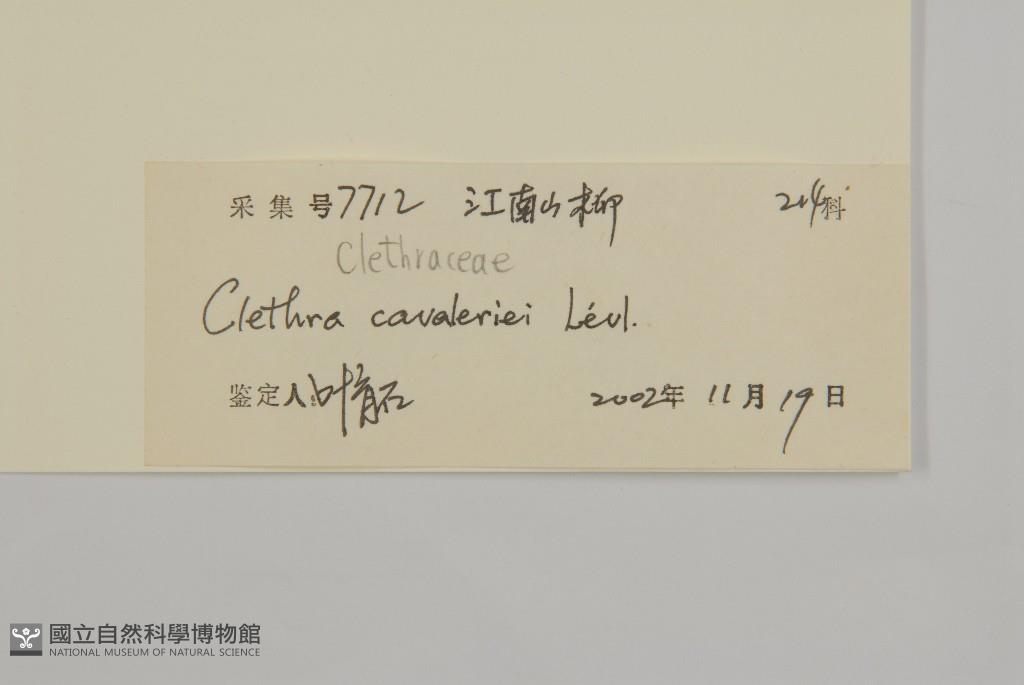 采集号7712 江南山柳 214科
Clethraceae
Clethra cavaleriei Lévl.
鉴定人 叶育石 2002年 11月 19日
國立自然科學博物館
NATIONAL MUSEUM OF NATURAL SCIENCE